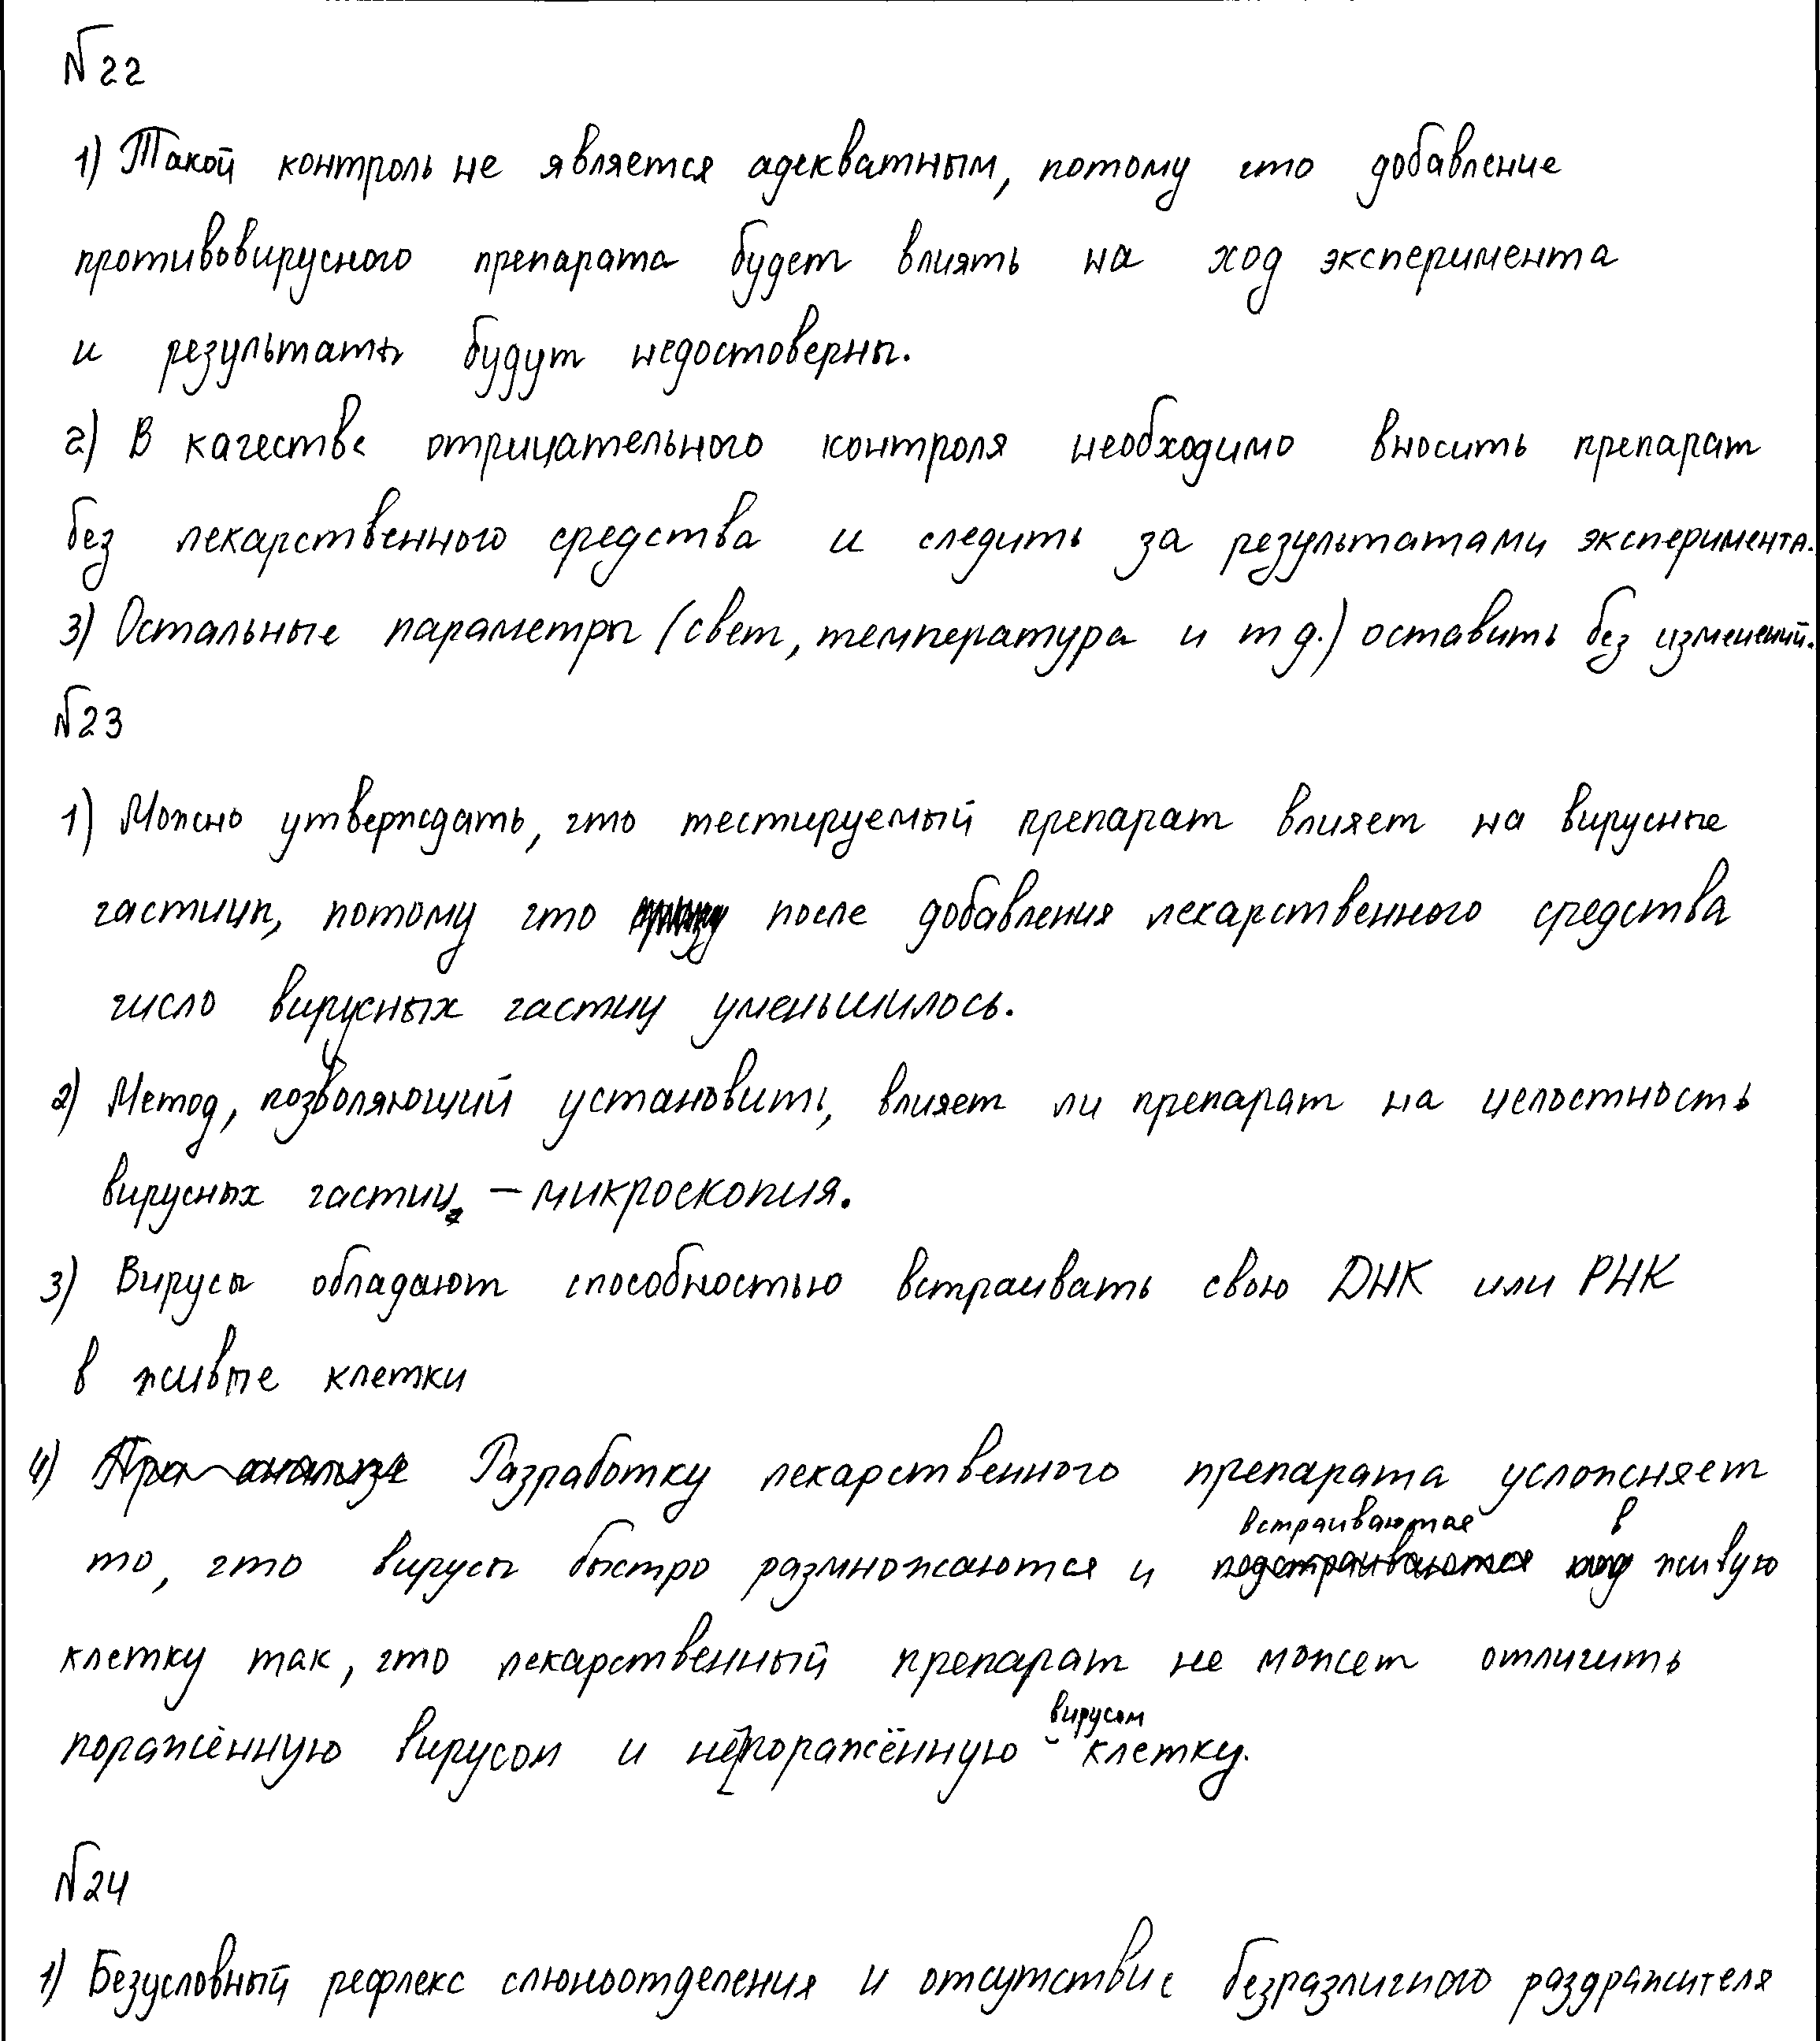 №22
1) Такой контроль не является адекватным, потому что добавление
противовирусного препарата будет влиять на ход эксперимента
и результаты будут недостоверны.
2) В качестве отрицательного контроля необходимо вносить препарат
без лекарственного средства и следить за результатами эксперимента.
3) Остальные параметры (свет, температура и т д.) оставить без изменений.
№23
1) Можно утверждать, что тестируемый препарат влияет на вирусные
частицы, потому что после добавления лекарственного средства
число вирусных частиц уменьшилось.
2) Метод, позволяющий установить, влияет ли препарат на целостность
вирусных частиц, – микроскопия.
3) Вирусы обладают способностью встраивать свою ДНК или РНК
в живые клетки
4) При анализе Разработку лекарственного препарата усложняет
встраиваются в
то, что вирусы быстро размножаются и подстраиваются под живую
клетку так, что лекарственный препарат не может отличить
вирусом
поражённую вирусом и непоражённую клетку.
№24
1) Безусловный рефлекс слюноотделения и отсутствие безразличного раздражителя